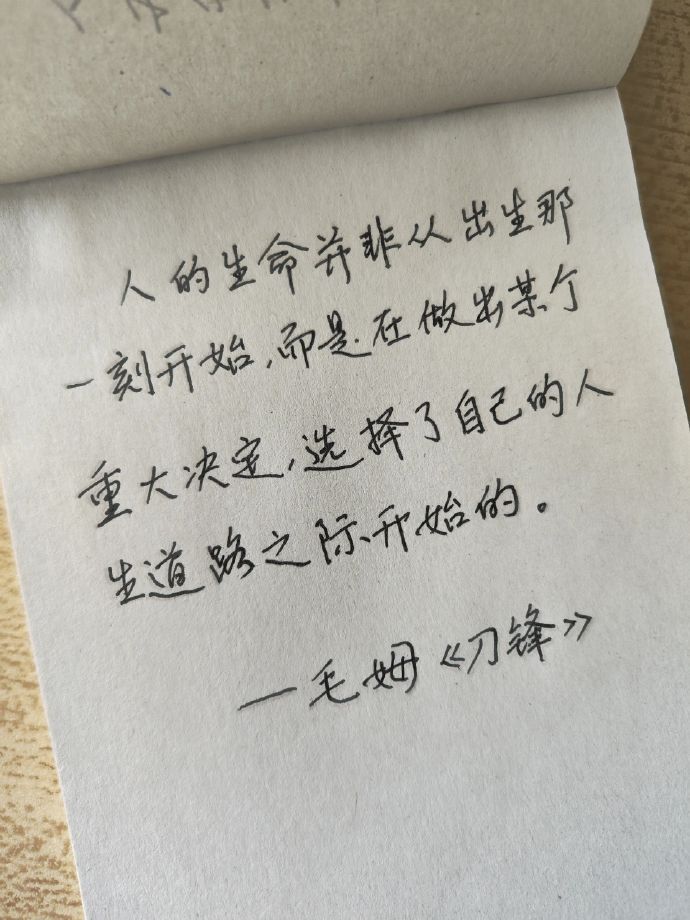 人的生命并非从出生那
一刻开始,而是在做出某个
重大决定,选择了自己的人
生道路之际开始的。
—毛姆《刀锋》